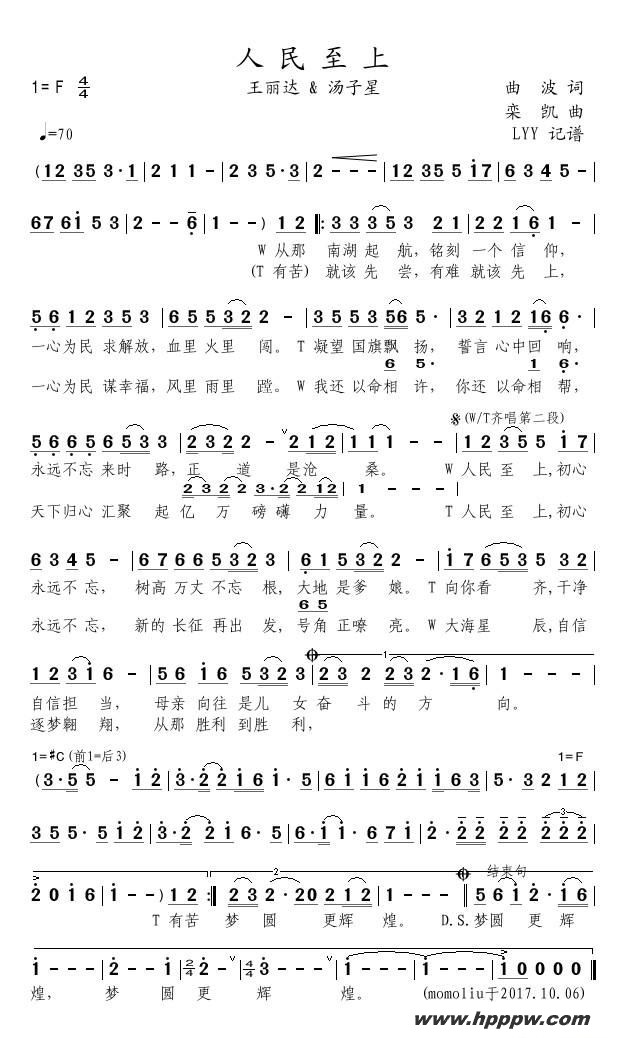 人民至上
1= F 4/4 王丽达 & 汤子星 曲 波 词
栾 凯 曲
♩=70 LYY 记谱
(12 35 3·1 | 2 1 1 - | 2 3 5·3 | 2 - - - | 12 35 5 17 | 6 3 4 5 - |
67 61 5 3 | 2 - - 6 | 1 - - ) 12 ‖: 33 353 21 | 22 16 1 - |
W 从那 南湖 起 航, 铭刻 一个 信 仰,
(T 有苦) 就该 先 尝, 有难 就该 先 上,
56 12 35 3 | 65 532 2 - | 35 53 56 5· | 32 1216 6· |
一心为民 求解放, 血里 火里 闯。 T 凝望 国旗飘 扬, 誓言 心中回 响,
6 5· 1 6·
一心为民 谋幸福, 风里 雨里 蹚。 W 我还 以命相 许, 你还 以命相 帮,
𝄋(W/T齐唱第二段)
56 65 653 3 | 23 2 2 - ˅ 212 | 1 1 1 - - | 12 35 5 17 |
永远不忘 来时 路, 正 道 是沧 桑。 W 人民 至 上,初心
23 22 3·2 212 | 1 - - - |
天下归心 汇聚 起 亿 万 磅 礴 力 量。 T 人民 至 上,初心
6 34 5 - | 67 66 532 3 | 61 532 2 - | 17 653 5 32 |
永远 不 忘, 树高 万丈 不忘 根, 大地 是爹 娘。 T 向你看 齐,干净
6 5
永远 不 忘, 新的 长征 再出 发, 号角 正嘹 亮。 W 大海星 辰,自信
1
12 31 6 - | 5 5 16 532 3 | 23 23 2·16 | 1 - - - |
自信担 当, 母亲 向往 是儿 女奋 斗的 方 向。
逐梦翱 翔, 从那 胜利 到胜 利,
1=#C (前1=后3) 1=F
(3·5 5 - 12 | 3·2 216 1· 5 | 61 162 1163 | 5· 32 12 |
3
35 5· 5 12 | 3·2 21 6· 5 | 61 1· 671 | 2· 22 22 222 |
2 结束句
2 01 6 | 1 - - ) 12 :‖ 23 2·20 212 | 1 - - - ‖ 561 2· 16 |
T 有苦 梦 圆 更辉 煌。 D.S.梦圆 更 辉
1 - - - | 2 - 1 - | 2/4 2 - ˅ | 4/4 3· - - | 1 - - 1 | 1 0 0 0 0 ‖
煌, 梦 圆 更 辉 煌。 (momoliu于2017.10.06)
www.hpppw.com